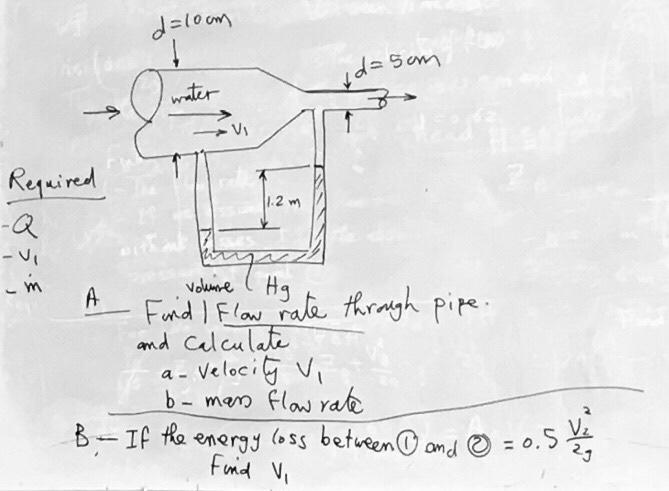 d=10cm
d=5cm
water
V₁
Required
-Q
1.2 m
-V₁
-ṁ
volume Hg
A - Find | Flow rate through pipe.
and Calculate
a- Velocity V₁
b- mass flow rate
B.- If the energy loss between ① and ② = 0.5 V₂²/2g
Find V₁